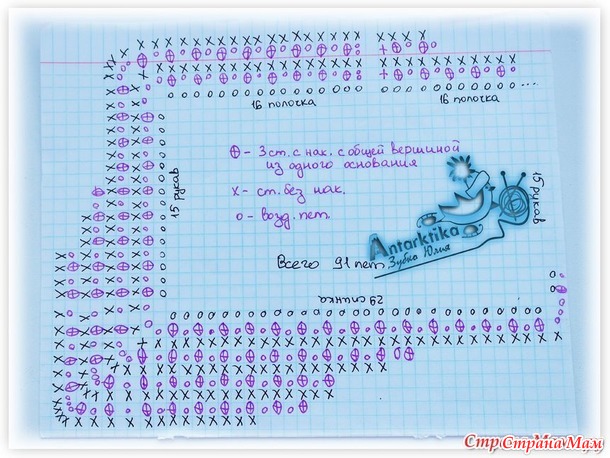 16 полочка
16 полочка
⊕ - 3 ст. с нак. с общей вершиной
из одного основания
x - ст. без нак.
o - возд. пет.
15 рукав
15 рукав
Antarktika
Зубко Юлия
Всего 91 пет
29 спинка
Страна Мам